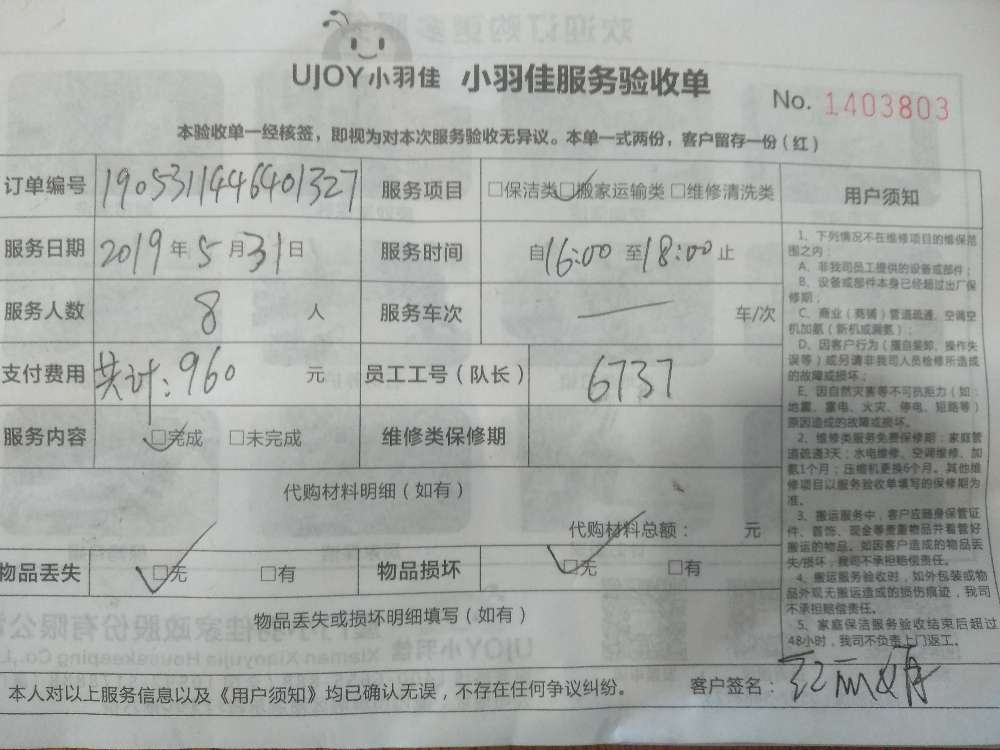 UJOY小羽佳 小羽佳服务验收单
No. 1403803
本验收单一经核签，即视为对本次服务验收无异议。本单一式两份，客户留存一份（红）
订单编号 1905311446401327 服务项目 □保洁类 □搬家运输类 □维修清洗类
服务日期 2019年5月31日 服务时间 自16:00至18:00止
服务人数 8 人 服务车次 — 车/次
支付费用 共计：960 元 员工工号（队长） 6737
服务内容 □完成 □未完成 维修类保修期
代购材料明细（如有）
代购材料总额： 元
物品丢失 □无 □有 物品损坏 □无 □有
物品丢失或损坏明细填写（如有）
本人对以上服务信息以及《用户须知》均已确认无误，不存在任何争议纠纷。 客户签名：
用户须知
1、下列情况不在维修项目的维保范
围之内：
A、非我司员工提供的设备或部件；
B、设备或部件本身已经超过出厂保
修期；
C、商业（商铺）管道疏通、空调空
机加氨（新机或漏氨）；
D、因客户行为（擅自装卸、操作失
误等）或另请非我司人员检修所造成
的故障或损坏；
E、因自然灾害等不可抗拒力（如：
地震、雷电、火灾、停电、短路等）
原因造成的故障或损坏。
2、维修类服务免费保修期：家庭管
道疏通3天；水电维修、空调维修、加
氨1个月；压缩机更换6个月。其他维
修项目以服务验收单填写的保修期为
准。
3、搬运服务中，客户应随身保管证
件、首饰、现金等贵重物品并看管好
搬运的物品。如因客户造成的物品丢
失/损坏，我司不承担赔偿责任。
4、搬运服务验收时，如外包装或物
品外观无搬运造成的损伤痕迹，我司
不承担赔偿责任。
5、家庭保洁服务验收结束后超过
48小时，我司不负责上门返工。